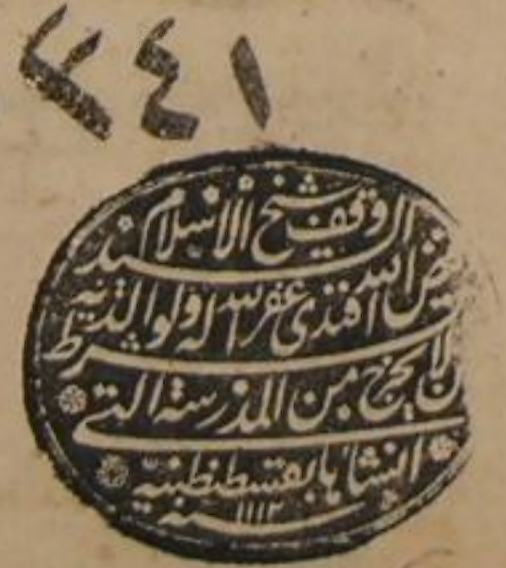 ٢٤١
وقف شيخ الاسلام السيد
فيض الله افندى غفر الله له ولوالديه
بشرط ان لا يخرج من المدرسة التى
انشاها بقسطنطينية
سنة ١١١٢